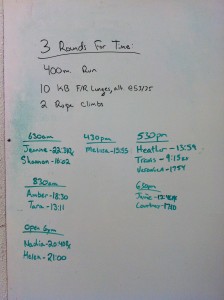 3 Rounds For Time
400m Run
10 KB F/R Lunges, alt @53/35
2 Rope Climbs
630am
Jemma - 22:31
Shannon - 16:02
830am
Amber - 18:30
Tara - 13:11
Open Gym
Nadia - 20:40
Helen - 21:00
430pm
Melissa - 13:55
530pm
Heather - 13:59
Travis - 9:13
Veronica - 17:54
630pm
Courtney - 17:10